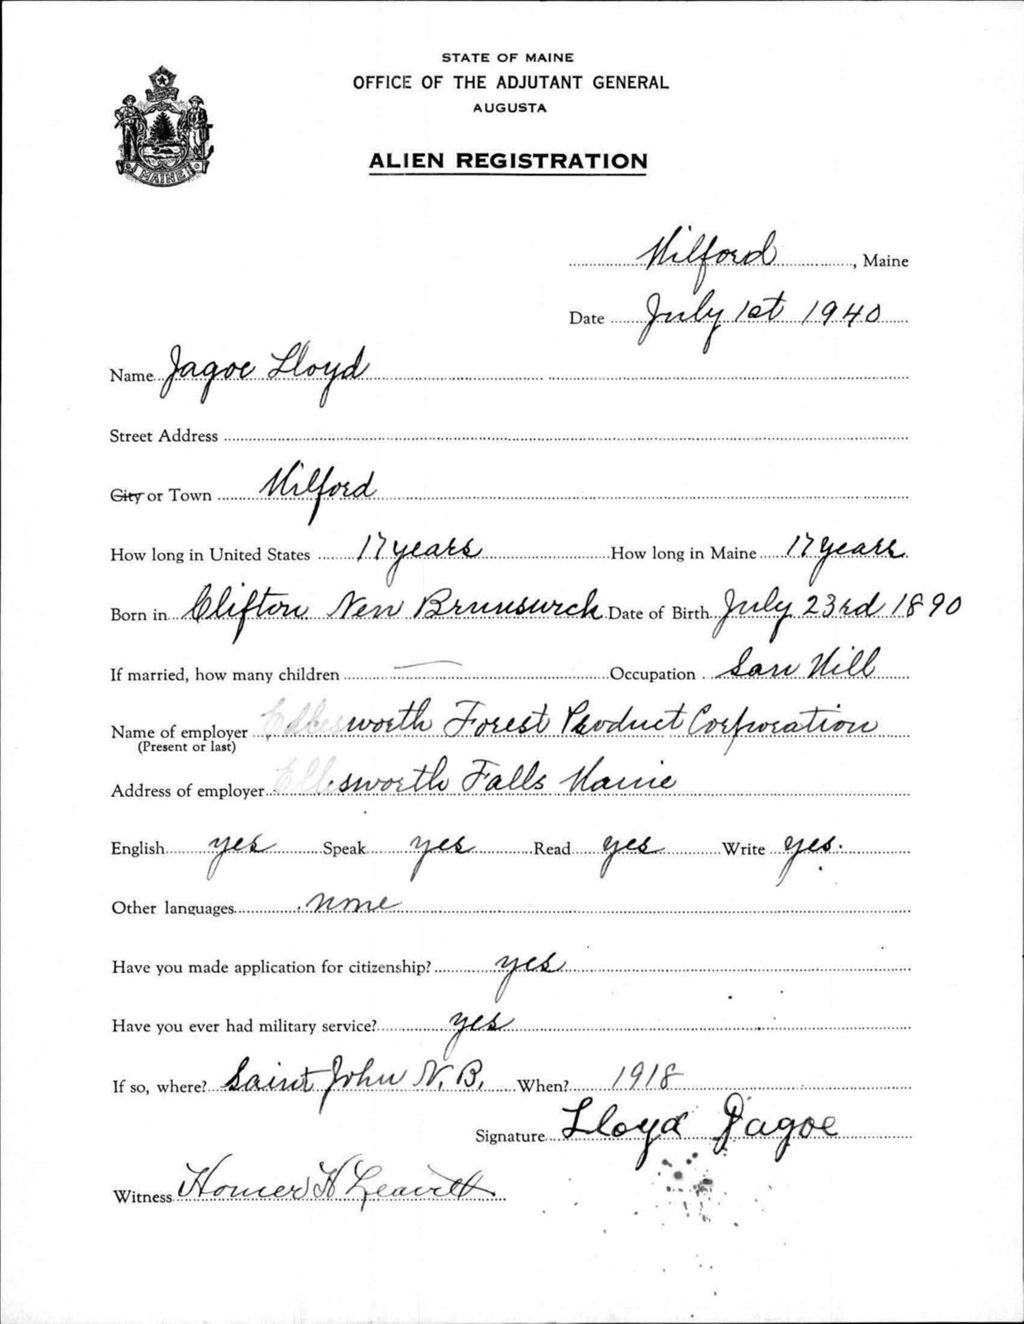 STATE OF MAINE
OFFICE OF THE ADJUTANT GENERAL
AUGUSTA
MAINE
ALIEN REGISTRATION
Milford, Maine
Date July 1st 1940
Name Jagoe Lloyd
Street Address
City or Town Milford
How long in United States 17 years How long in Maine 17 years
Born in Clifton New Brunswick Date of Birth July 23rd 1890
If married, how many children — Occupation Saw Mill
Name of employer Ellesworth Forest Product Corporation
(Present or last)
Address of employer Ellesworth Falls Maine
English yes Speak yes Read yes Write yes.
Other languages none
Have you made application for citizenship? yes
Have you ever had military service? yes
If so, where? Saint John N.B. When? 1918
Signature Lloyd Jagoe
Witness Homer H Leavitt